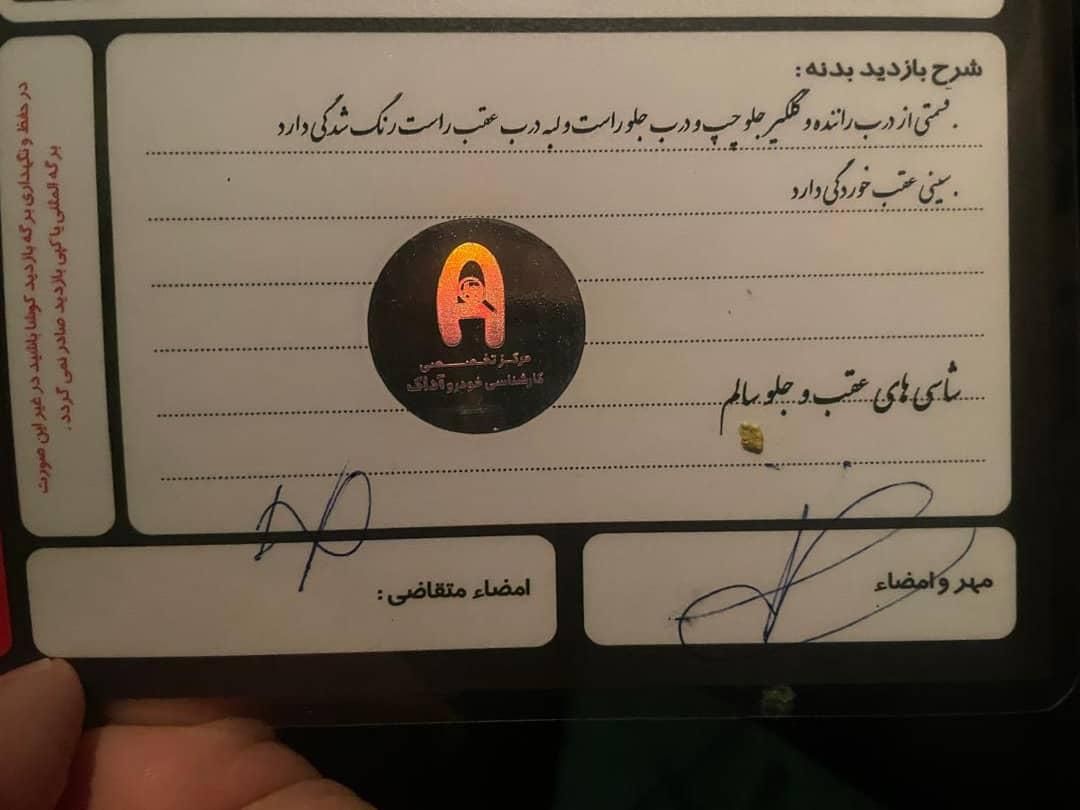 شرح بازدید بدنه:
. قسمتی از درب راننده و گلگیر جلو چپ و درب جلو راست و لبه درب عقب راست رنگ شدگی دارد
. سینی عقب خوردگی دارد
مرکز تخصصی
کارشناسی خودرو آداک
شاسی های عقب و جلو سالم
مهر و امضاء
امضاء متقاضی:
در حفظ و نگهداری برگه بازدید کوشا باشید در غیر این صورت
برگه المثنی یا کپی بازدید صادر نمی گردد.